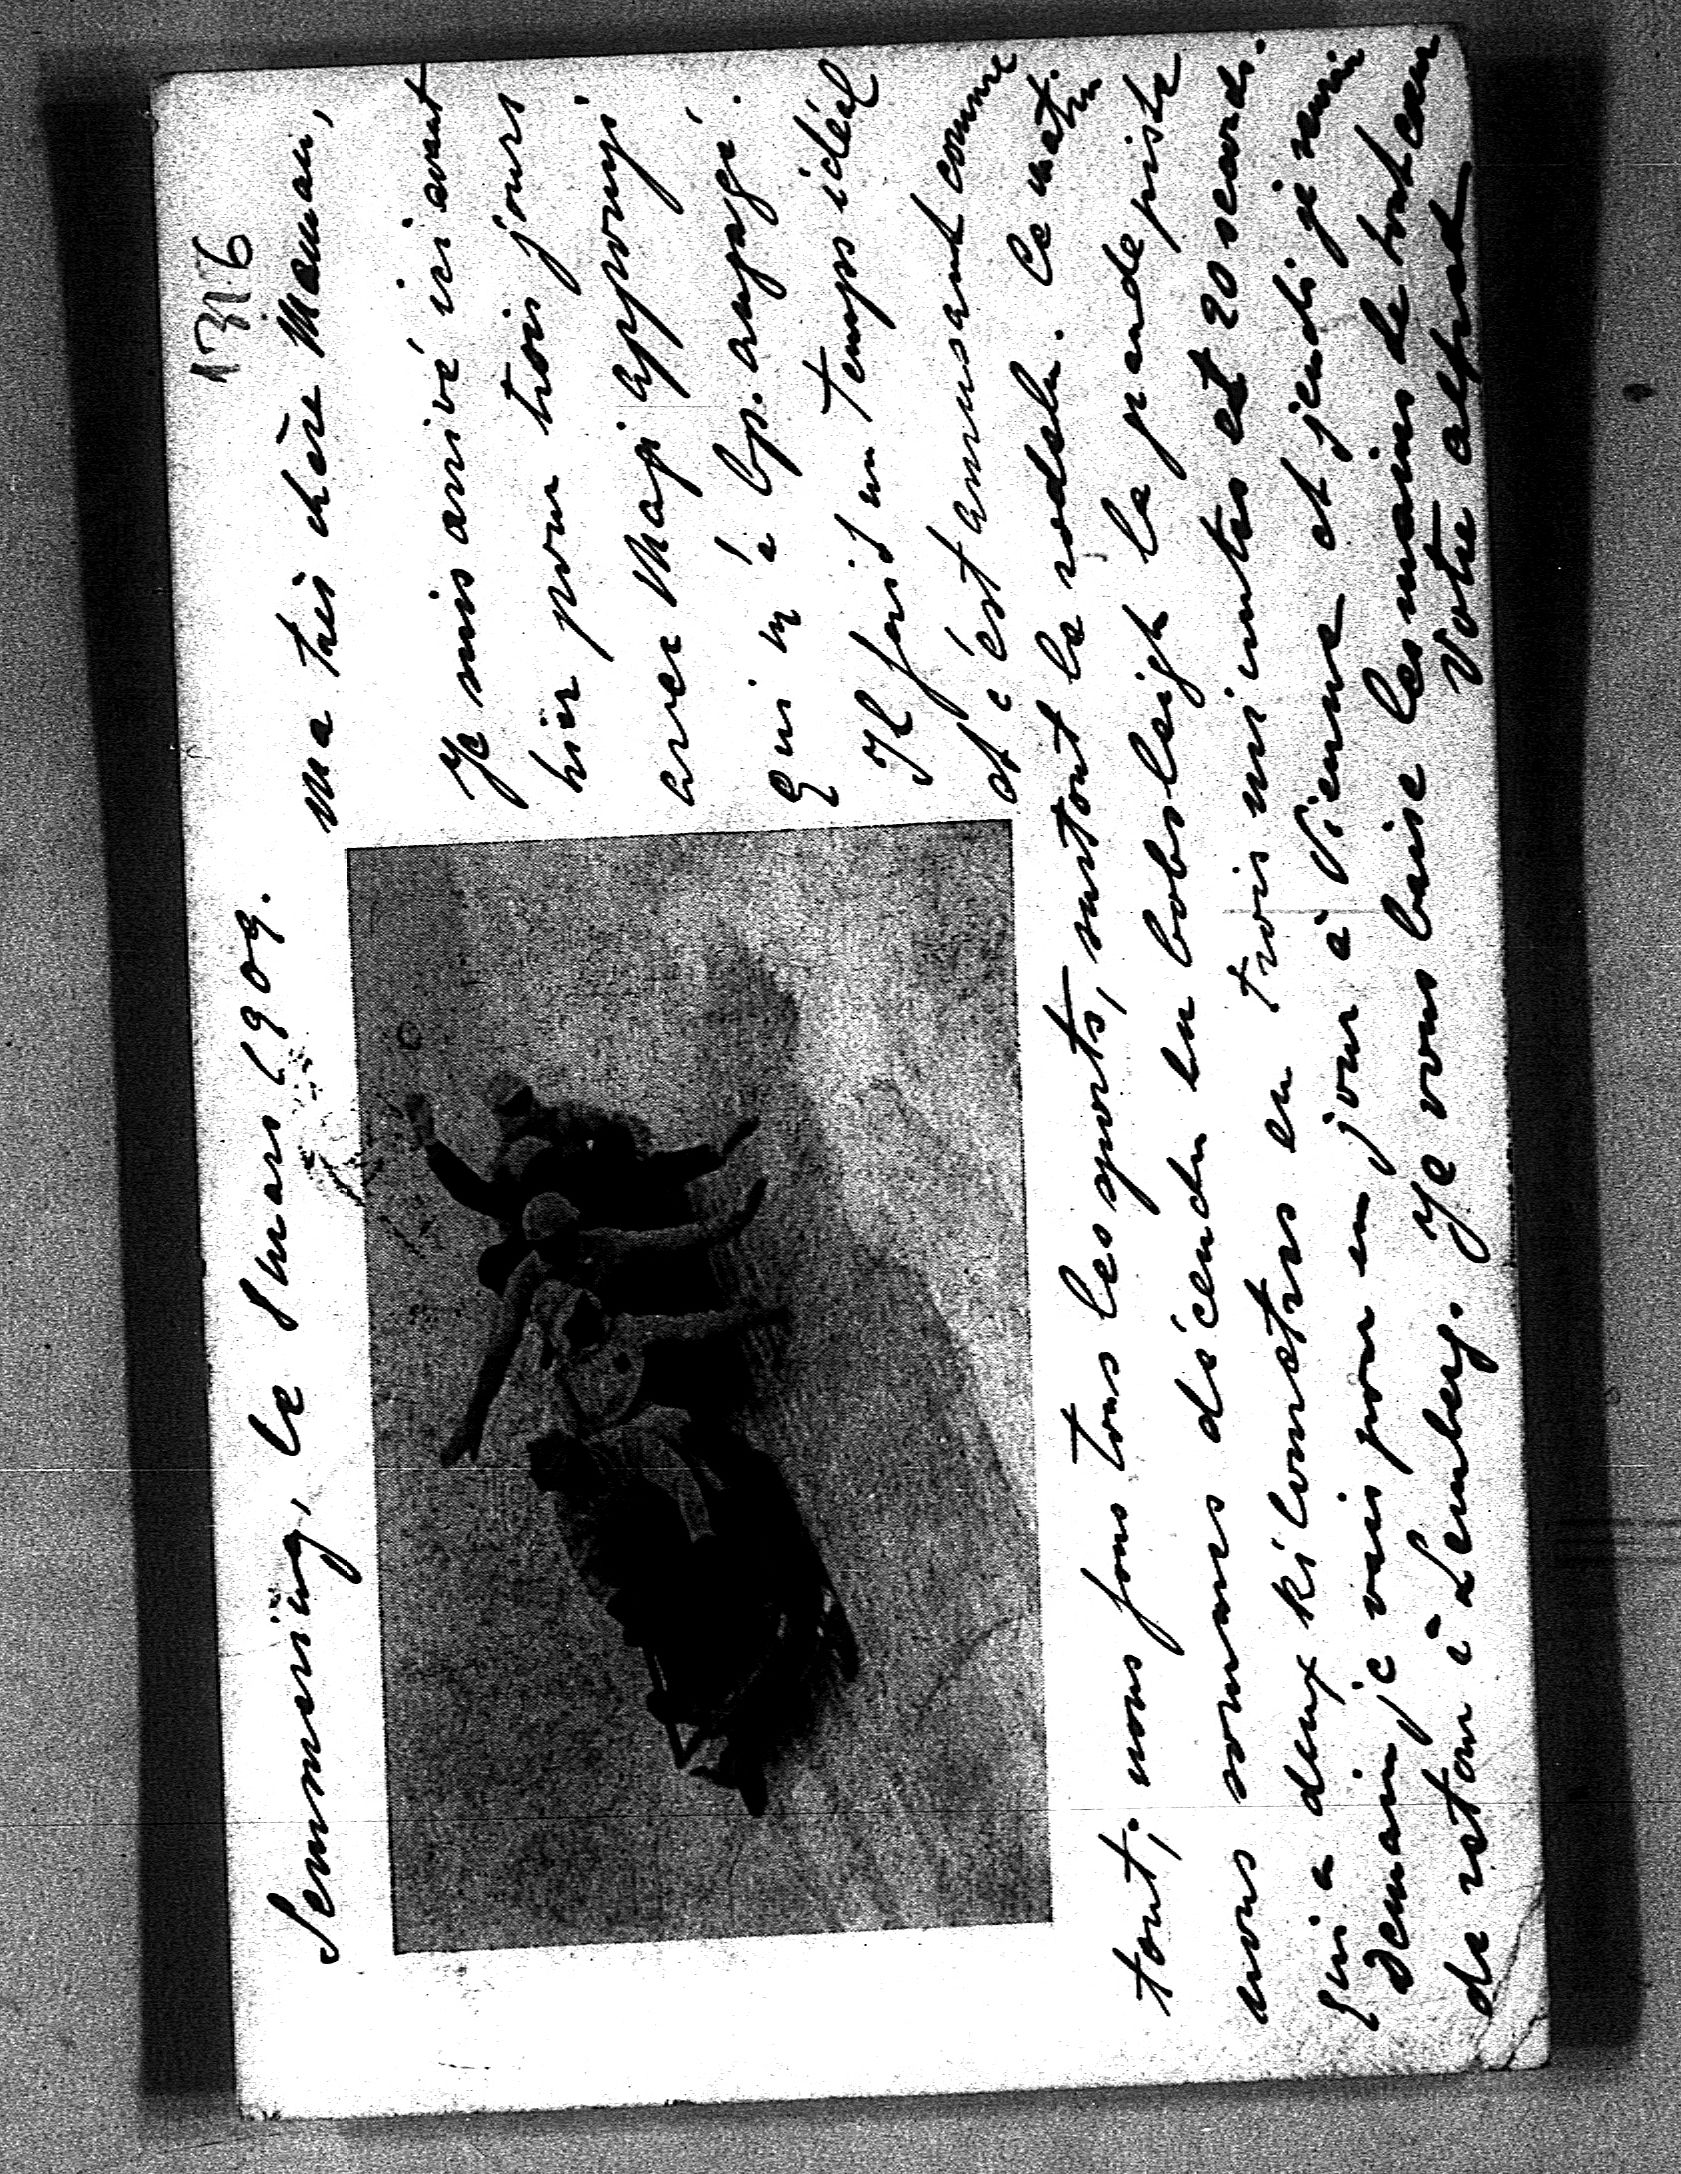 1316
Semmering, le 8 mars 1909.
Ma très chère Maman,
Je suis arrivé ici avant
hier pour trois jours
avec Magi
qui m'a
Il fait un temps idéal
et c'est amusant comme
tout; nous fons tous les sports, surtout le rodeln. Ce matin
nous sommes décendu en bobsleigh la grande piste
qui a deux kilometres en trois minutes et 20 second.
Demain je vais pour un jour à Vienne et jeudi je serai
de retour à Lemberg. Je vous baise les mains de tout cœur
Votre Alfred